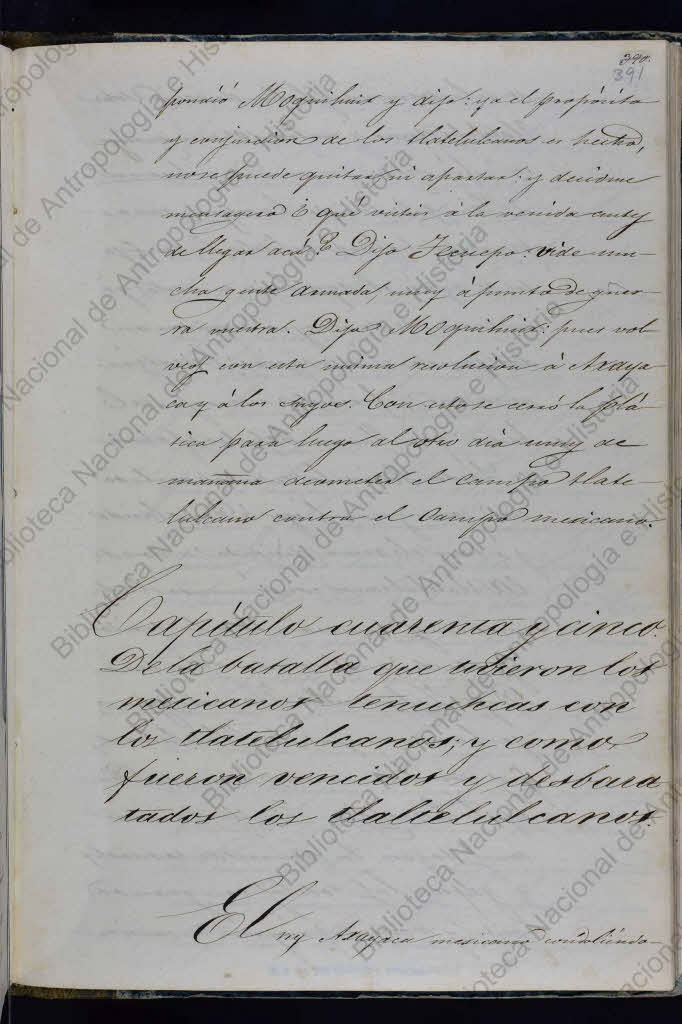 390.
391
pondió Moquihuix y dijo: ya el propósito
y conjuracion de los tlatelulcanos es hecho,
no se puede quitar, ni apartar: y decidme
mensagero ¿ qué visteis á la venida antes
de llegar acá? Dijo Tecuepo: vide mu-
cha gente armada, muy á punto de guer-
ra vuestra. Dijo Moquihuix: pues vol-
veos con esta misma resolucion á Axaya-
ca y á los suyos. Con esto se cerró la plá-
tica para luego al otro dia muy de
mañana acometer el campo tlate-
lulcano contra el campo mexicano.
Capítulo cuarenta y cinco.
De la batalla que udieron los
mexicanos tenuchcas con
los tlatelulcanos; y como
fueron vencidos y desbara
tados los tlaltelulcanos.
El rey Axayaca mexicano condoliéndo-
Biblioteca Nacional de Antropología e Historia